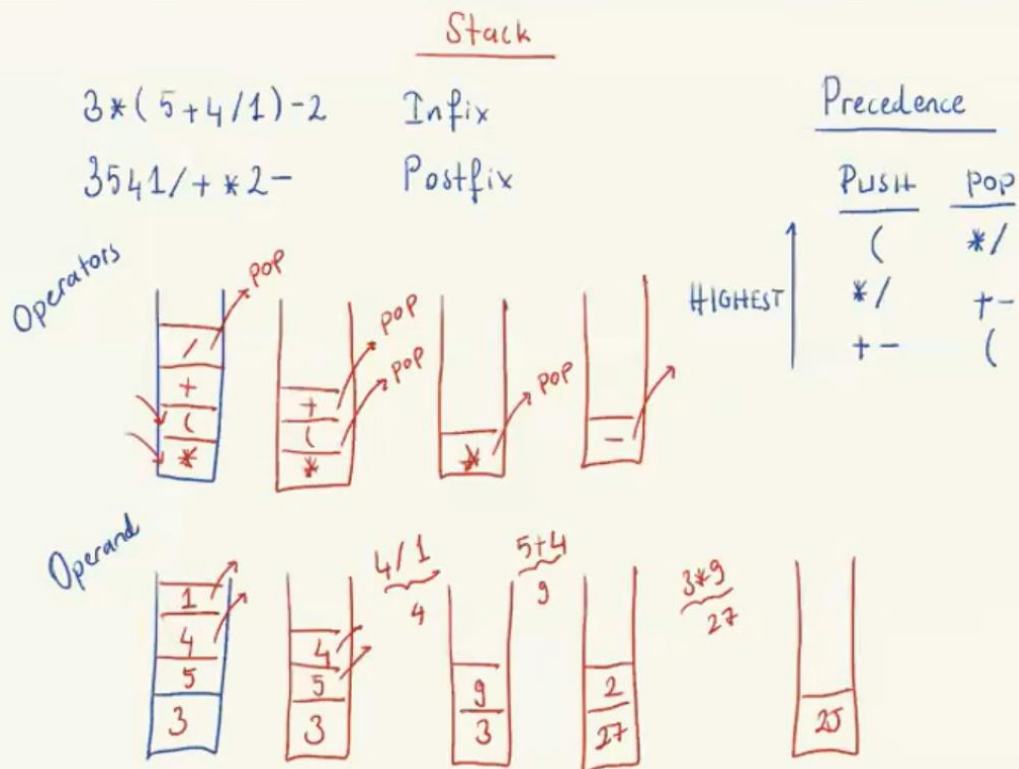 Stack
3*(5+4/1)-2 Infix
3541/+*2- Postfix
Precedence
PUSH POP
( */
HIGHEST */ +-
+- (
Operators
/ pop
+
(
*
+ pop
( pop
*
* pop
-
Operand
1
4
5
3
4
5
3
4/1
4
9
3
5+4
9
2
27
3*9
27
25